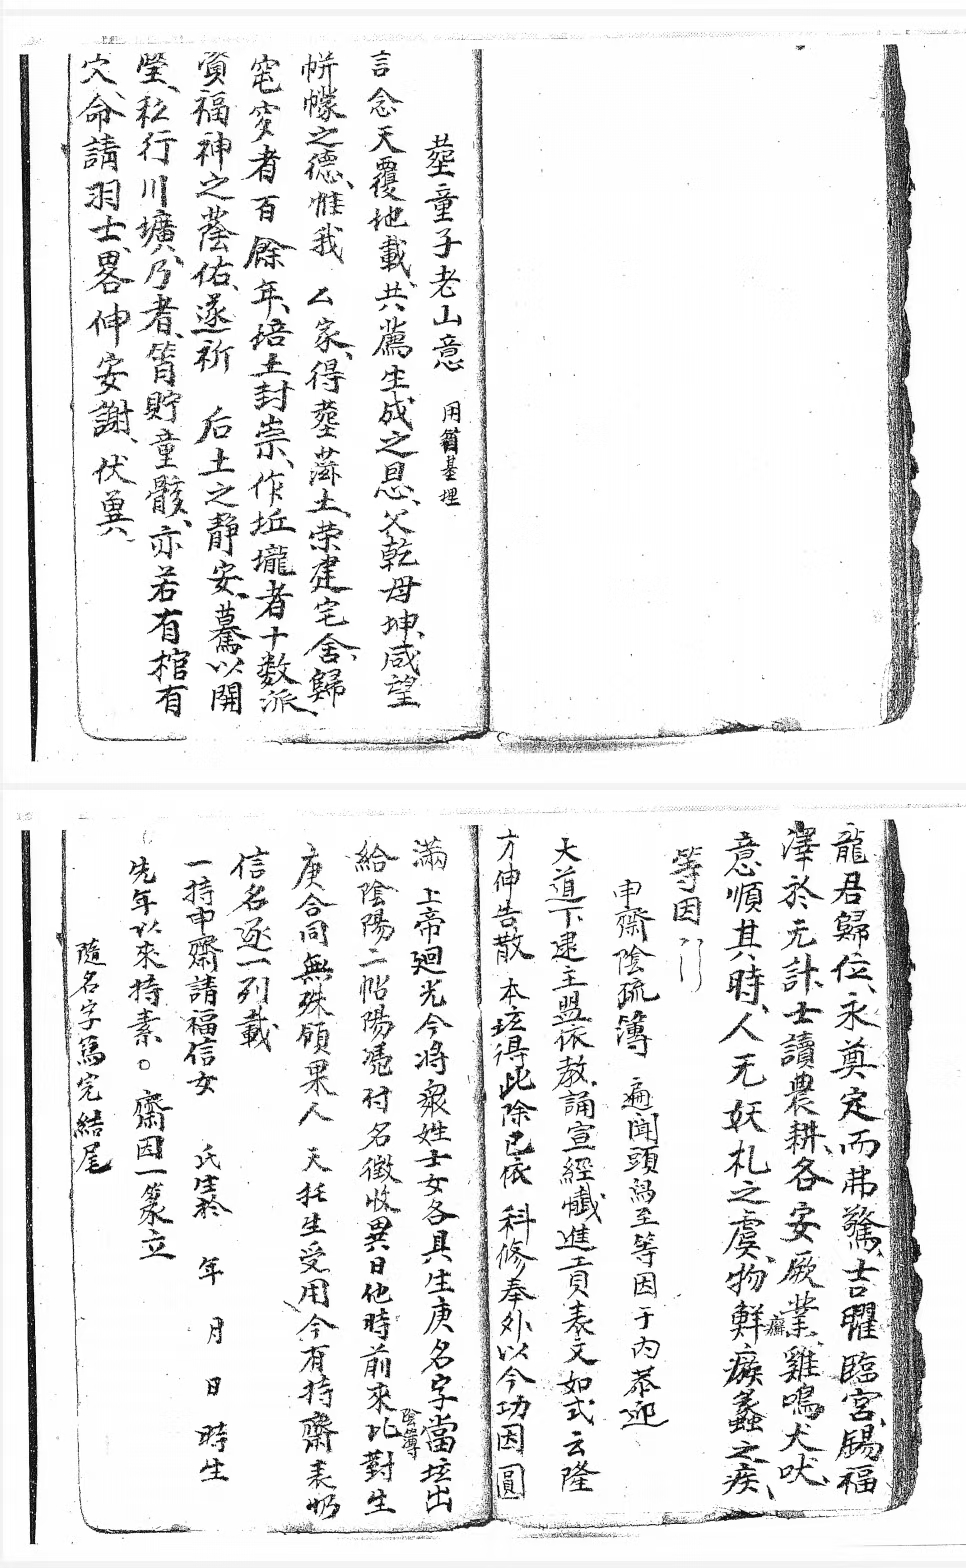 塟童子老山意　用箵基埋
言念天覆地載、共薦生成之恩、父乾母坤、咸望
帡幪之德、惟我　厶家、得塟茲土、荣建宅舍、歸
窀穸者百餘年、培土封崇、作坵壠者十数派、
資福神之蔭佑、遂祈　后土之靜安、驀以開
塋、私行川壙、乃者、筲貯童骸、亦若有棺有
穴、命請羽士、畧伸安謝、伏冀、
龍君歸位、永奠定而弗驚、吉曜臨宮、賜福
澤於无計、士讀農耕、各安厥業、雞鳴犬吠、
意順其時、人无妖札之虞、物鮮癘瘯蠡之疾、
等因
申齋陰疏簿　遍聞頭為至等因于内恭迎
大道下逮主盟依教誦宣經懺進貢表文如式云隆
方伸告散　本坛得此除已依　科修奉外以今功因圓
滿　上帝廻光今将衆姓士女各具生庚名字當坛出
給陰陽二帖陽凴付名徵收異日他時前來比對生陰簿
庚合同無殊領果人　天托生受用今有持齋表妳
信名逐一列載
一持中齋請福信女　　氏生於　年　月　日　時生
先年以來持素。齋因一篆立
隨名字寫完結尾